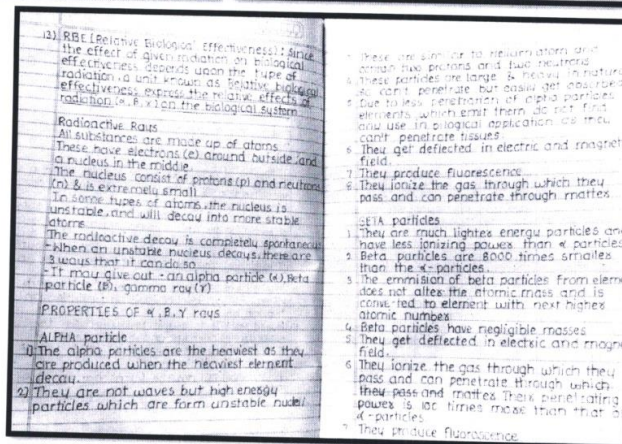 13) RBE [Relative Biological Effectiveness] : Since
the effect of given radiation on biological
effectiveness depends upon the type of
radiation, a unit known as Relative biological
effectiveness express the relative effects of
radiation (α, β, x) on the biological system
Radioactive Rays
All substances are made up of atoms
These have electrons (e) around outside and
a nucleus in the middle
The nucleus consist of protons (p) and neutrons
(n) & is extremely small
In some types of atoms, the nucleus is
unstable, and will decay into more stable
atoms
The radioactive decay is completely spontaneous
- When an unstable nucleus decays, there are
3 ways that it can do so
- It may give out - an alpha particle (α), Beta
particle (β), gamma ray (γ)
PROPERTIES OF α, β, γ rays
ALPHA particle
1) The alpha particles are the heaviest as they
are produced when the heaviest element
decay.
2) They are not waves but high energy
particles which are form unstable nuclei
These are similar to helium atom and
contain two protons and two neutrons
These particles are large & heavy in nature
so can't penetrate but easily get absorbed
5 Due to less penetration of alpha particles
elements, which emit them do not find
any use in biological application as they
can't penetrate tissues.
6 They get deflected in electric and magnet
field.
7 They produce fluorescence
8. They ionize the gas through which they
pass and can penetrate through matter
BETA particles
1. They are much lighter energy particles and
have less ionizing power than α particles
2 Beta particles are 8000 times smaller
than the α-particles.
3 The emmision of beta particles from eleme
does not alter the atomic mass and is
converted to element with next higher
atomic number
4 Beta particles have negligible masses
5 They get deflected in electric and magne
field.
6 They ionize the gas through which they
pass and can penetrate through which
they pass and matter Their penetrating
power is 100 times more than that o
α-particles
7 They produce fluorescence